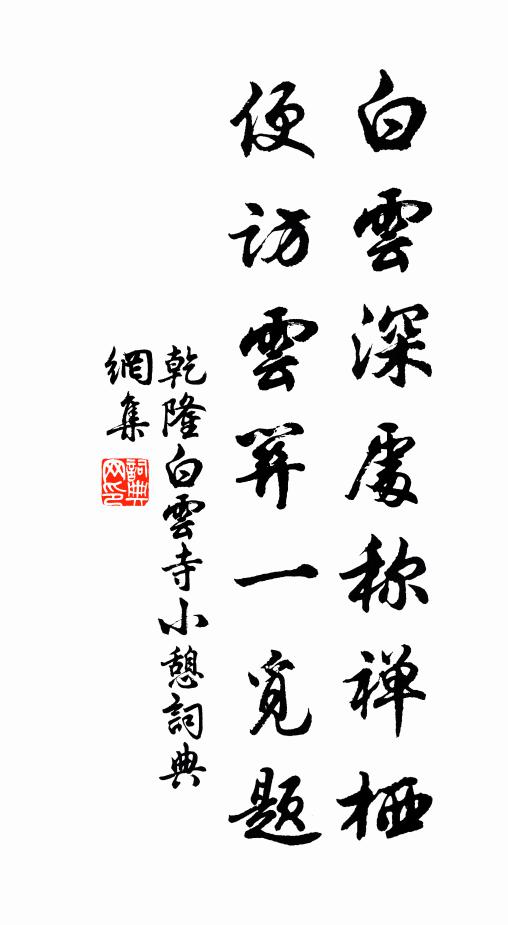 白雲深處称禅栖
便訪雲算一覓題
乾隆白雲寺小憩詞典
網集
詞典
网印